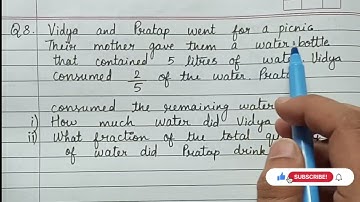 Q8. Vidya and Pratap went for a picnic
Their mother gave them a water bottle
that contained 5 litres of water. Vidya
consumed 2/5 of the water. Pratap
consumed the remaining water
i) How much water did Vidya
ii) What fraction of the total
of water did Pratap drink
SUBSCRIBE!